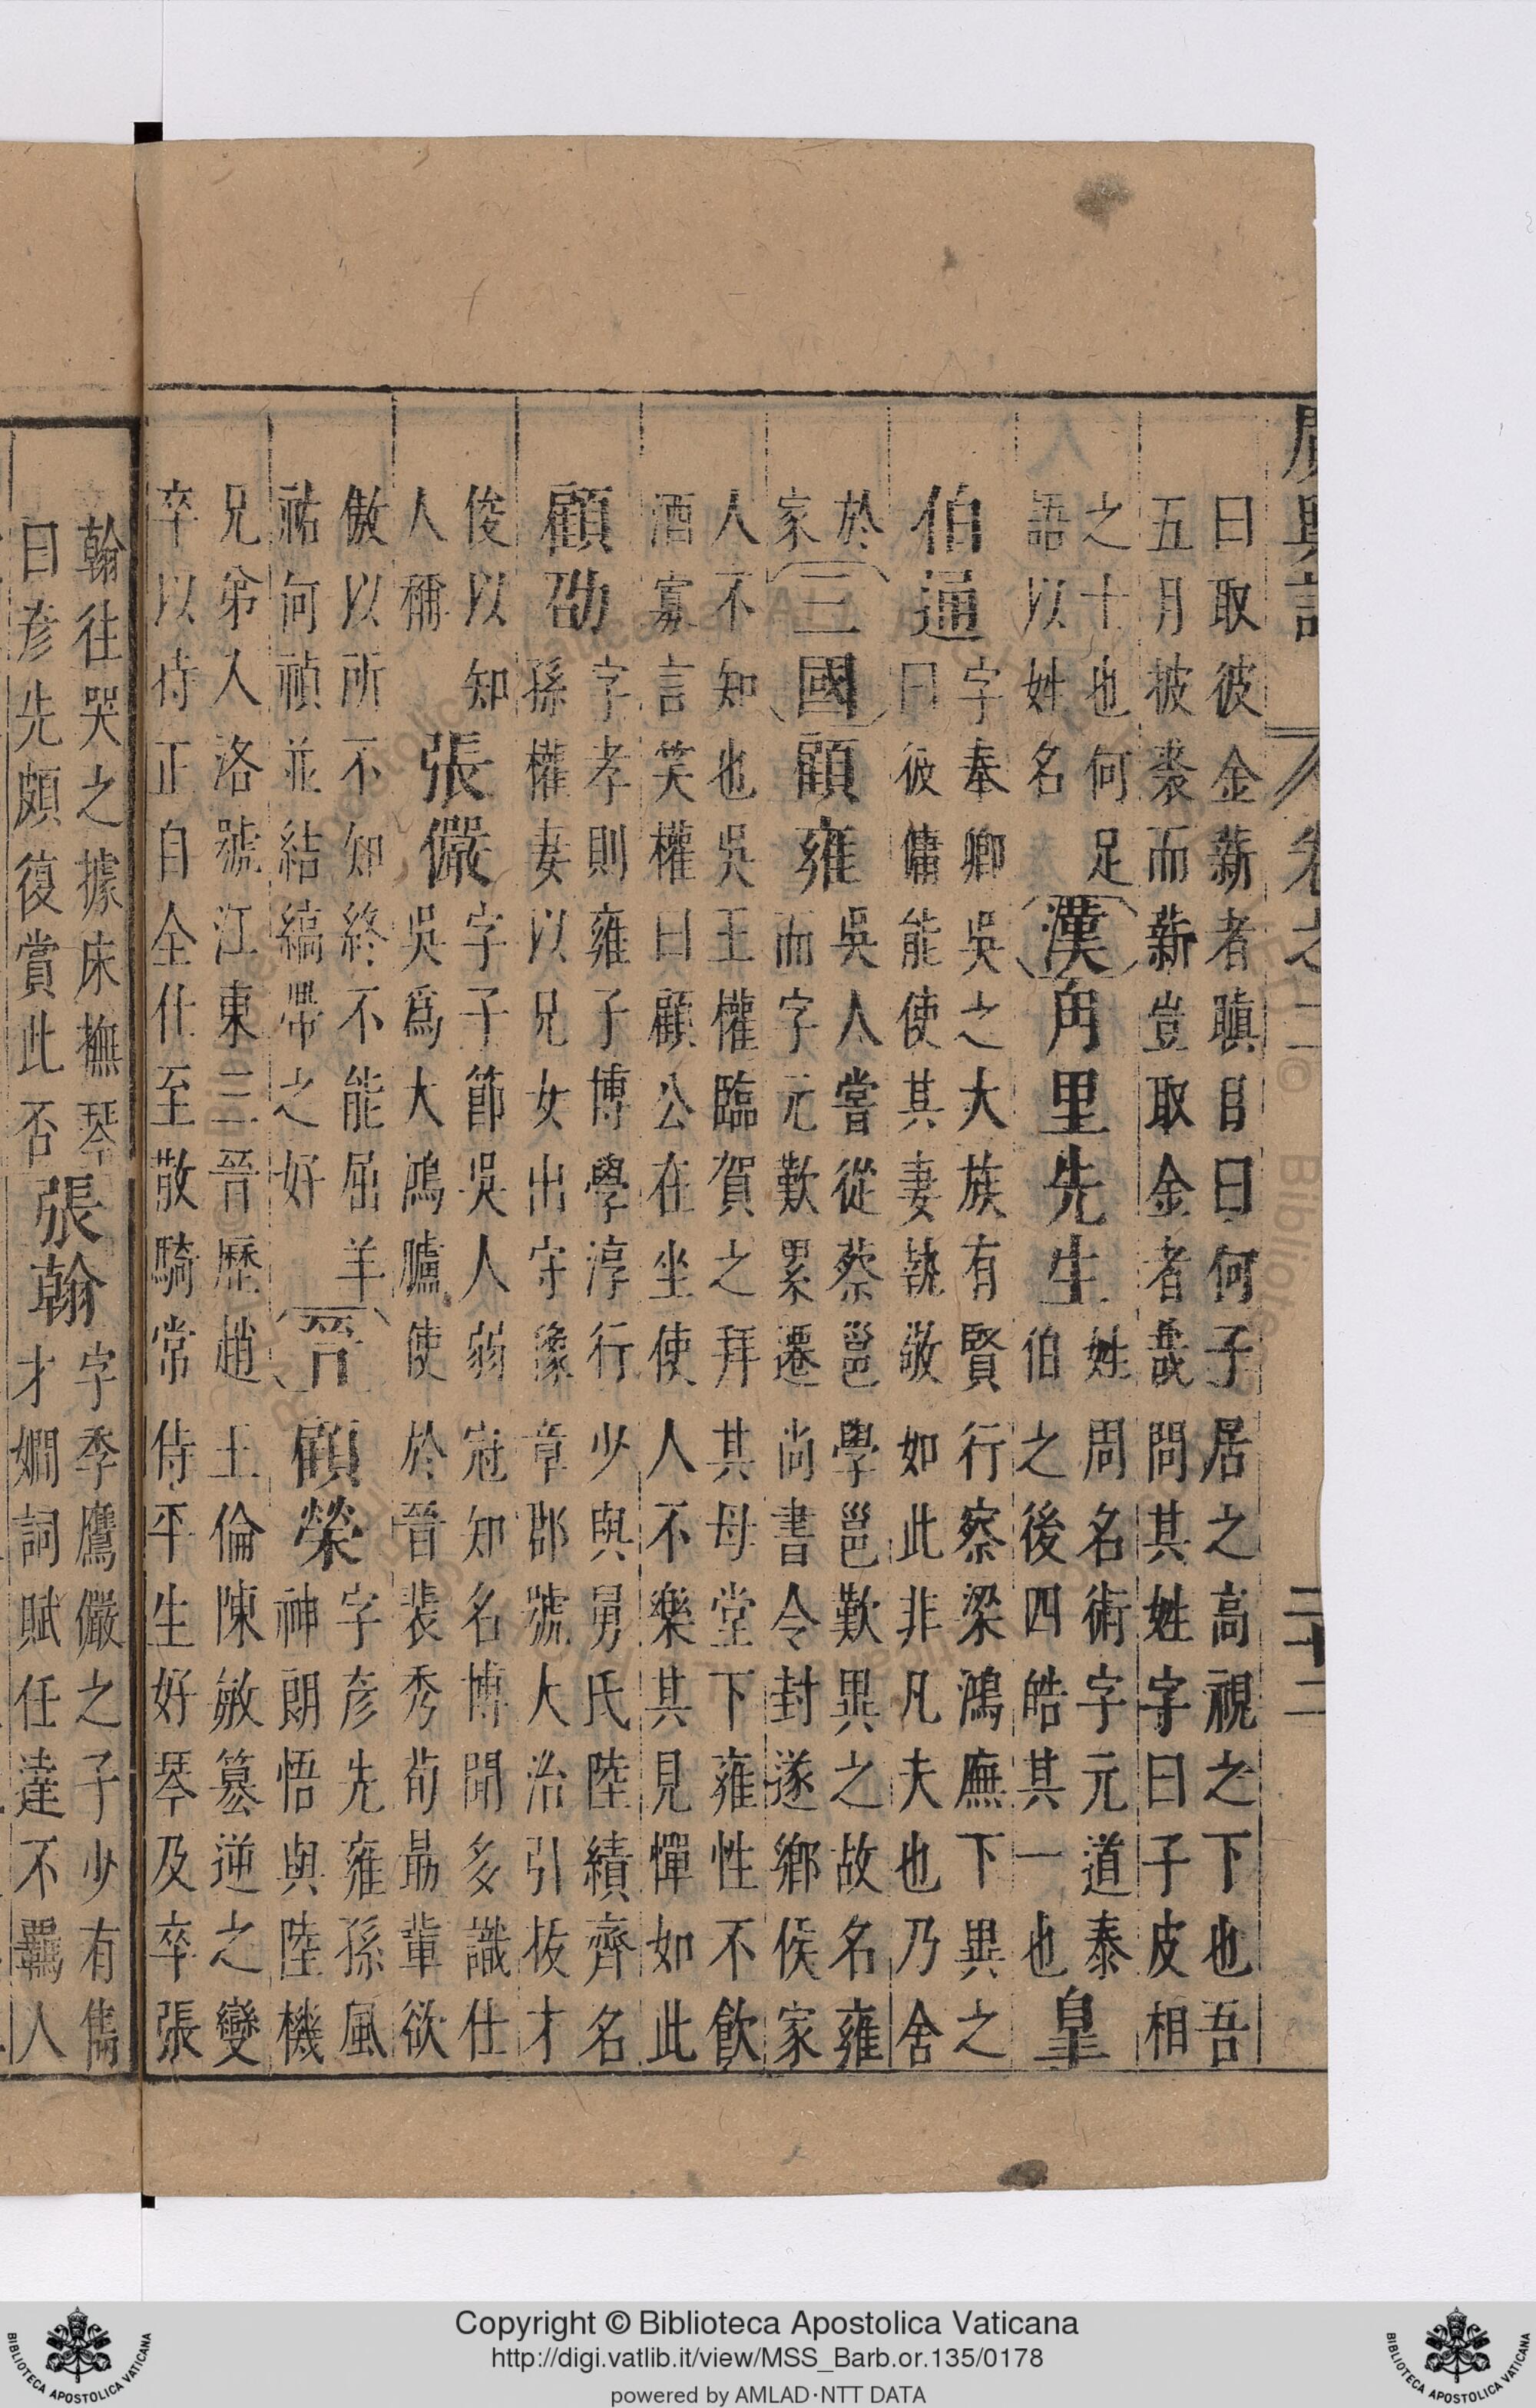 廣輿記
卷之
二十二
曰取彼金薪者瞋目曰何子居之高視之下也吾
五月披裘而薪豈取金者哉問其姓字曰子皮相
之士也何足
語以姓名
漢
角里先生
姓周名術字元道泰
伯之後四皓其一也
皇
伯通
字奉卿吳之大族有賢行察梁鴻廡下異之
曰彼傭能使其妻執敬如此非凡夫也乃舍
於
家
三國
顧雍
吳人嘗從蔡邕學邕歎異之故名雍
而字元歎累遷尚書令封遂鄉侯家
人不知也吳王權臨賀之拜其母堂下雍性不飲
酒寡言笑權曰顧公在坐使人不樂其見憚如此
顧劭
字孝則雍子博學淳行少與舅氏陸績齊名
孫權妻以兄女出守豫章郡號大治引拔才
俊以知
人稱
張儼
字子節吳人弱冠知名博聞多識仕
吳爲大鴻臚使於晉裴秀荀勗輩欲
傲以所不知終不能屈羊
祜何禎並結縞帶之好
晉
顧榮
字彥先雍孫風
神朗悟與陸機
兄弟入洛號江東三晉歷趙王倫陳敏篡逆之變
卒以恃正自全仕至散騎常侍平生好琴及卒張
翰往哭之據床撫琴
曰彥先頗復賞此否
張翰
字季鷹儼之子少有雋
才嫺詞賦任達不羈人
Copyright © Biblioteca Apostolica Vaticana
http://digi.vatlib.it/view/MSS_Barb.or.135/0178
powered by AMLAD·NTT DATA
BIBLIOTECA APOSTOLICA VATICANA
BIBLIOTECA APOSTOLICA VATICANA